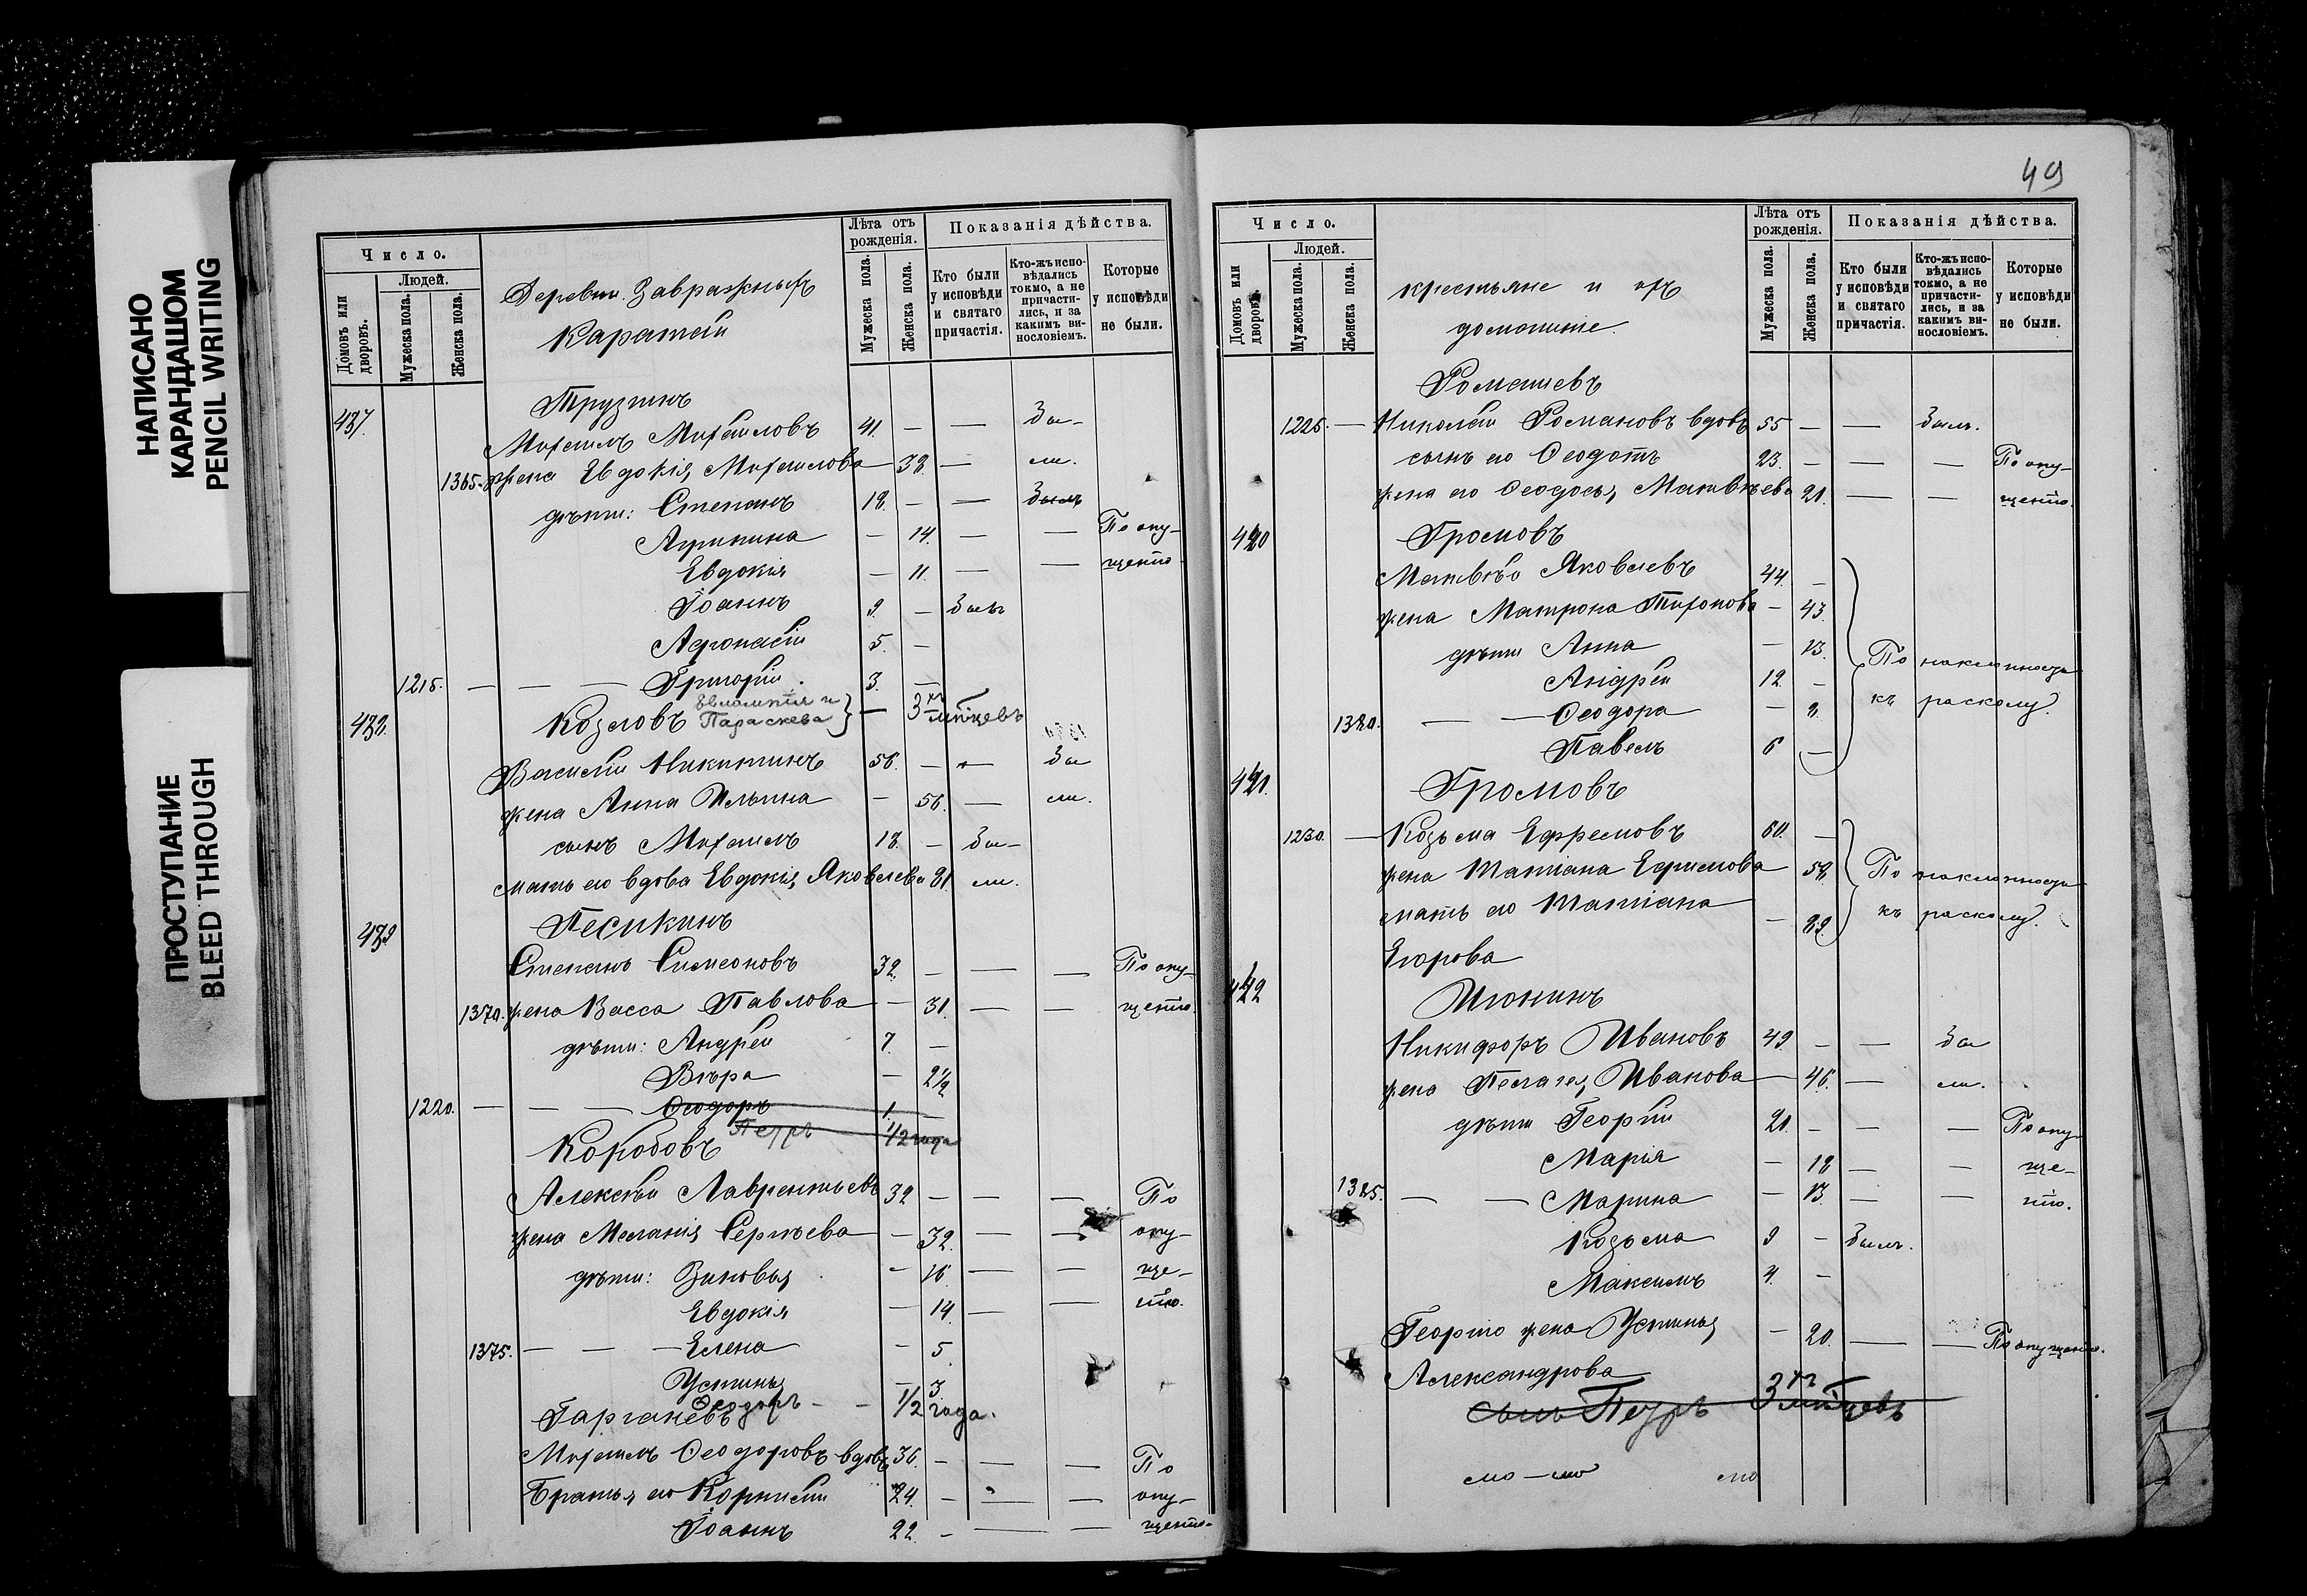 НАПИСАНО
КАРАНДАШОМ
PENCIL WRITING
ПРОСТУПАНИЕ
BLEED THROUGH
Число.
Лѣта отъ рожденія.
Показанія дѣйства.
Домовъ или дворовъ.
Людей.
Мужеска пола.
Женска пола.
Деревни Завражныхъ
Каратай
Мужеска пола.
Женска пола.
Кто были у исповѣди и святаго причастія.
Кто-жъ исповѣдались токмо, а не причастились, и за какимъ винословіемъ.
Которые у исповѣди не были.
Трузинъ
Михаилъ Михаиловъ 41. — — Бы-
1365. жена Евдокія Михаилова — 38 — ли.
дѣти: Степанъ 18. — — Былъ
Агрипина — 14. — — По опу-
Евдокія — 11. — — щенію
Іоаннъ 9. — Былъ
Афонасій 5. —
1215. — — — Григорій. 3. —
Козловъ Евлампія и Параскева } — 3хъ лѣтъ
Василій Никитинъ 56. — — Бы
жена Анна Ильина — 56. — ли.
сынъ Михаилъ 18. — Бы-
мать его вдова Евдокія Яковлева 81 ли.
Песикинъ
Степанъ Симеоновъ 32. — — — По опу-
1370. жена Васса Павлова — 31. — — щенію.
дѣти: Андрей 7. —
Вѣра — 2½
1220. — — — Ѳеодоръ 1. —
Коробовъ Петръ 1/2 года
Алексѣй Лаврентьевъ 32 — — — По
жена Меланія Сергѣева — 32. — — опу-
дѣти: Зиновья — 16. — — ще-
Евдокія — 14. — — нію.
1375. — — — Елена — 5.
Устинья — 3
Ѳеодоръ - - 1/2 года.
Михаилъ Ѳеодоровъ вдовъ 36. — — — По
Братья его Корнилій 24. — — — опу-
Іоаннъ 22. — — — щенію-
49
Число.
Лѣта отъ рожденія.
Показанія дѣйства.
Домовъ или дворовъ.
Людей.
Мужеска пола.
Женска пола.
крестьяне и ихъ
домашніе.
Мужеска пола.
Женска пола.
Кто были у исповѣди и святаго причастія.
Кто-жъ исповѣдались токмо, а не причастились, и за какимъ винословіемъ.
Которые у исповѣди не были.
1225. — Николай Романовъ вдовъ 55 — — Былъ.
сынъ его Ѳеодотъ 23. — — — По опу-
жена его Ѳеодосья Матвѣева 21. — — щенію.
Громовъ
Матвѣй Яковлевъ 44. —
жена Матрона Тихонова — 43.
дѣти Анна — 13. По наклонности
Андрей 12. — къ расколу.
1320. — — Ѳеодора — 8.
Павелъ 6 —
Громовъ
1230. — Козьма Ефремовъ 60. —
жена Татіана Ефимова 58. По наклонности
мать его Татіана — 89. къ расколу.
Егорова
Июнинъ
Никифоръ Ивановъ 49. — — Бы
жена Пелагея Иванова — 46. — ли.
дѣти Георгій 21. — — — По опу-
Марія — 18 — — ще-
1325. — — Марина — 13. — — нію.
Козьма 9 — Былъ.
Максимъ 4. —
Георгія жена Устинья — 20. — — По опущенію.
Александрова
сынъ Петръ 3хъ